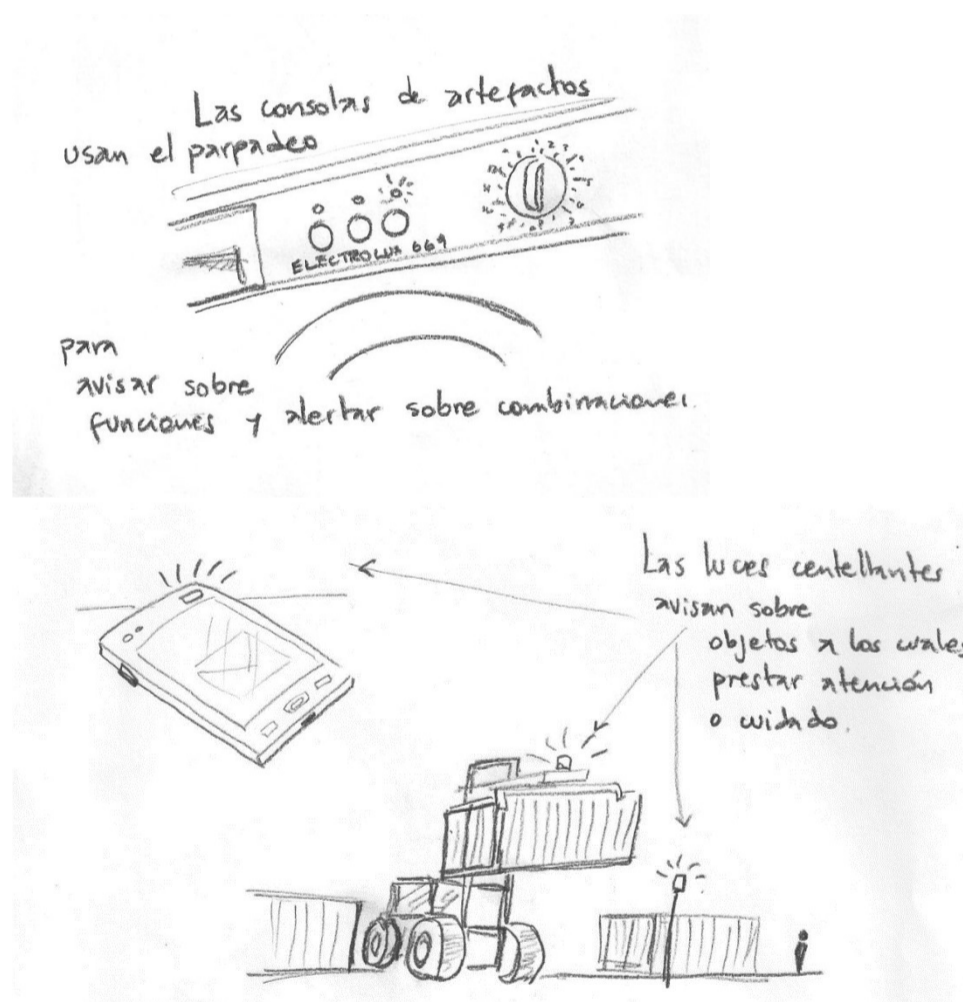 Las consolas de artefactos
usan el parpadeo
ELECTROLUX 669
para
avisar sobre
funciones y alertar sobre combinaciones.
Las luces centellantes
avisan sobre
objetos a los cuales
prestar atención
o cuidado.